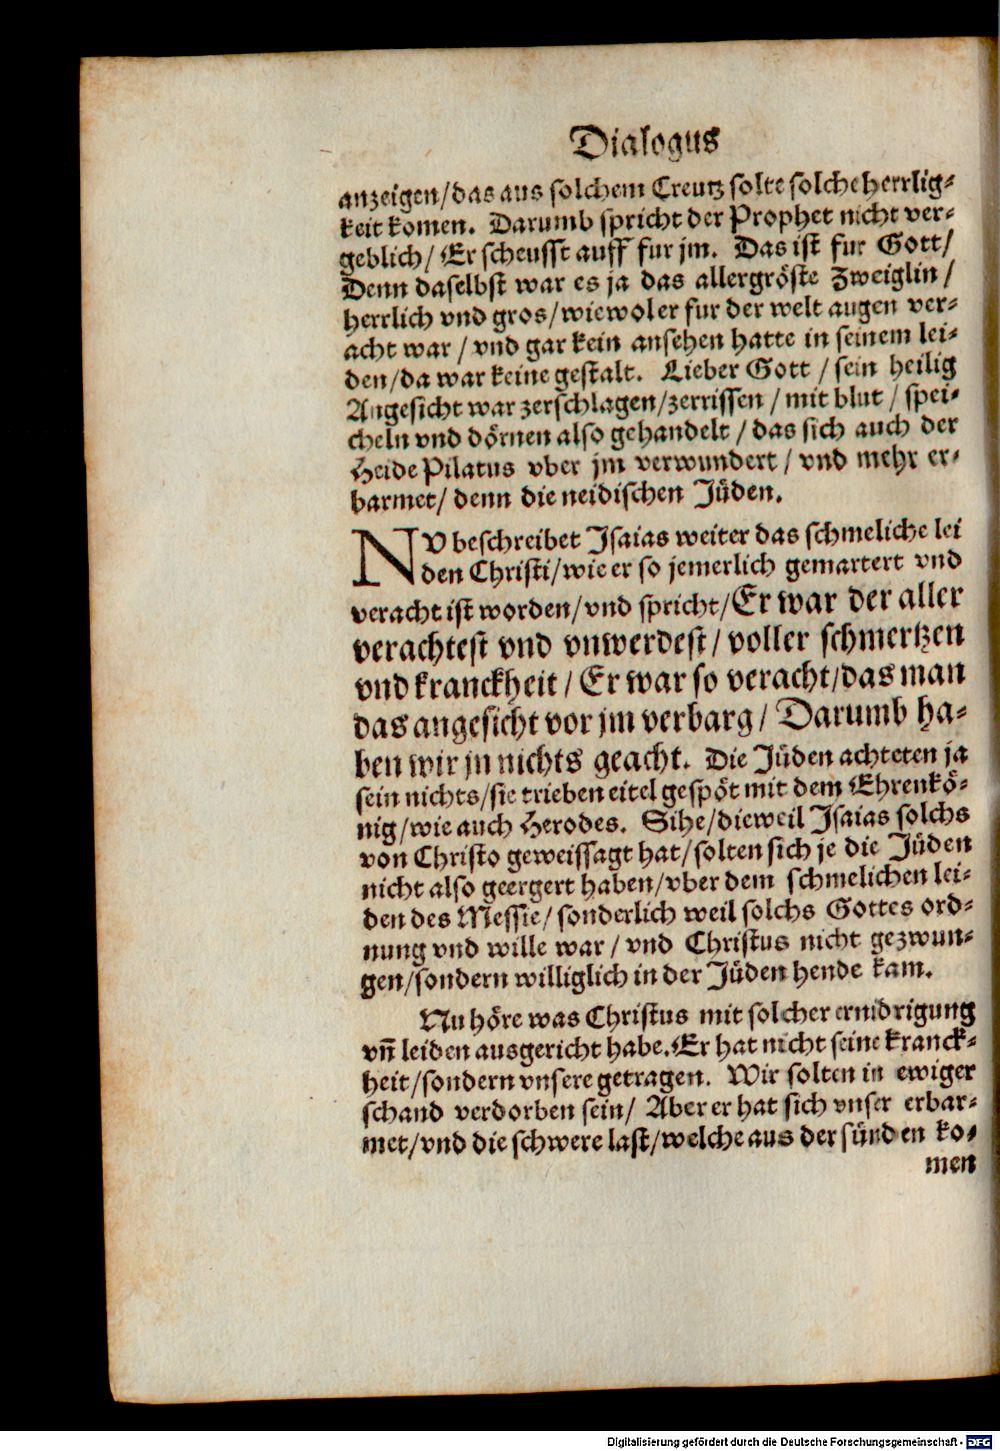 Dialogus
anzeigen/das aus solchem Creutz solte solche herrlig-
keit komen. Darumb spricht der Prophet nicht ver-
geblich/ Er scheusst auff fur jm. Das ist fur Gott/
Denn daselbst war es ja das allergröste Zweiglin/
herrlich vnd gros/wiewol er fur der welt augen ver-
acht war/vnd gar kein ansehen hatte in seinem lei-
den/da war keine gestalt. Lieber Gott/sein heilig
Angesicht war zerschlagen/zerrissen/mit blut/spei-
cheln vnd dörnen also gehandelt/das sich auch der
Heide Pilatus vber jm verwundert/vnd mehr er-
barmet/denn die neidischen Jüden.
NV beschreibet Isaias weiter das schmeliche lei
den Christi/wie er so jemerlich gemartert vnd
veracht ist worden/vnd spricht/Er war der aller
verachtest vnd vnwerdest/voller schmertzen
vnd kranckheit/Er war so veracht/das man
das angesicht vor jm verbarg/Darumb ha-
ben wir jn nichts geacht. Die Jüden achteten ja
sein nichts/sie trieben eitel gespöt mit dem Ehrenkö-
nig/wie auch Herodes. Sihe/dieweil Isaias solchs
von Christo geweissagt hat/solten sich je die Jüden
nicht also geergert haben/vber dem schmelichen lei-
den des Messie/sonderlich weil solchs Gottes ord-
nung vnd wille war/vnd Christus nicht gezwun-
gen/sondern williglich in der Jüden hende kam.
Nu höre was Christus mit solcher ernidrigung
vñ leiden ausgericht habe. Er hat nicht seine kranck-
heit/sondern vnsere getragen. Wir solten in ewiger
schand verdorben sein/ Aber er hat sich vnser erbar-
met/vnd die schwere last/welche aus der sünden ko-
men
Digitalisierung gefördert durch die Deutsche Forschungsgemeinschaft - DFG